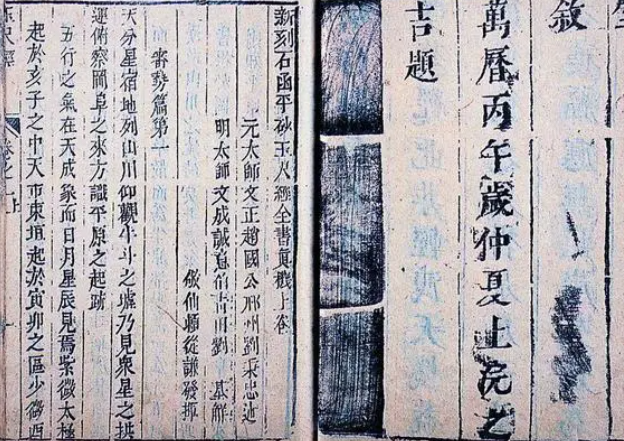 叙
萬曆丙午歲仲夏上浣之
吉題
新刻石函平砂玉尺經全書真機上卷
元太師文正趙國公邢州劉秉忠述
明太師文成誠意伯青田劉基解
仙賴從謙發揮
審勢篇第一
天分星宿地列山川仰觀牛斗之墟乃見衆星之拱
運俯察岡阜之來方識平原之起跡
五行之氣在天成象而日月星辰見焉紫微太極
起於亥子之中天市東垣起於寅卯之區少微西
玉尺經 卷之上